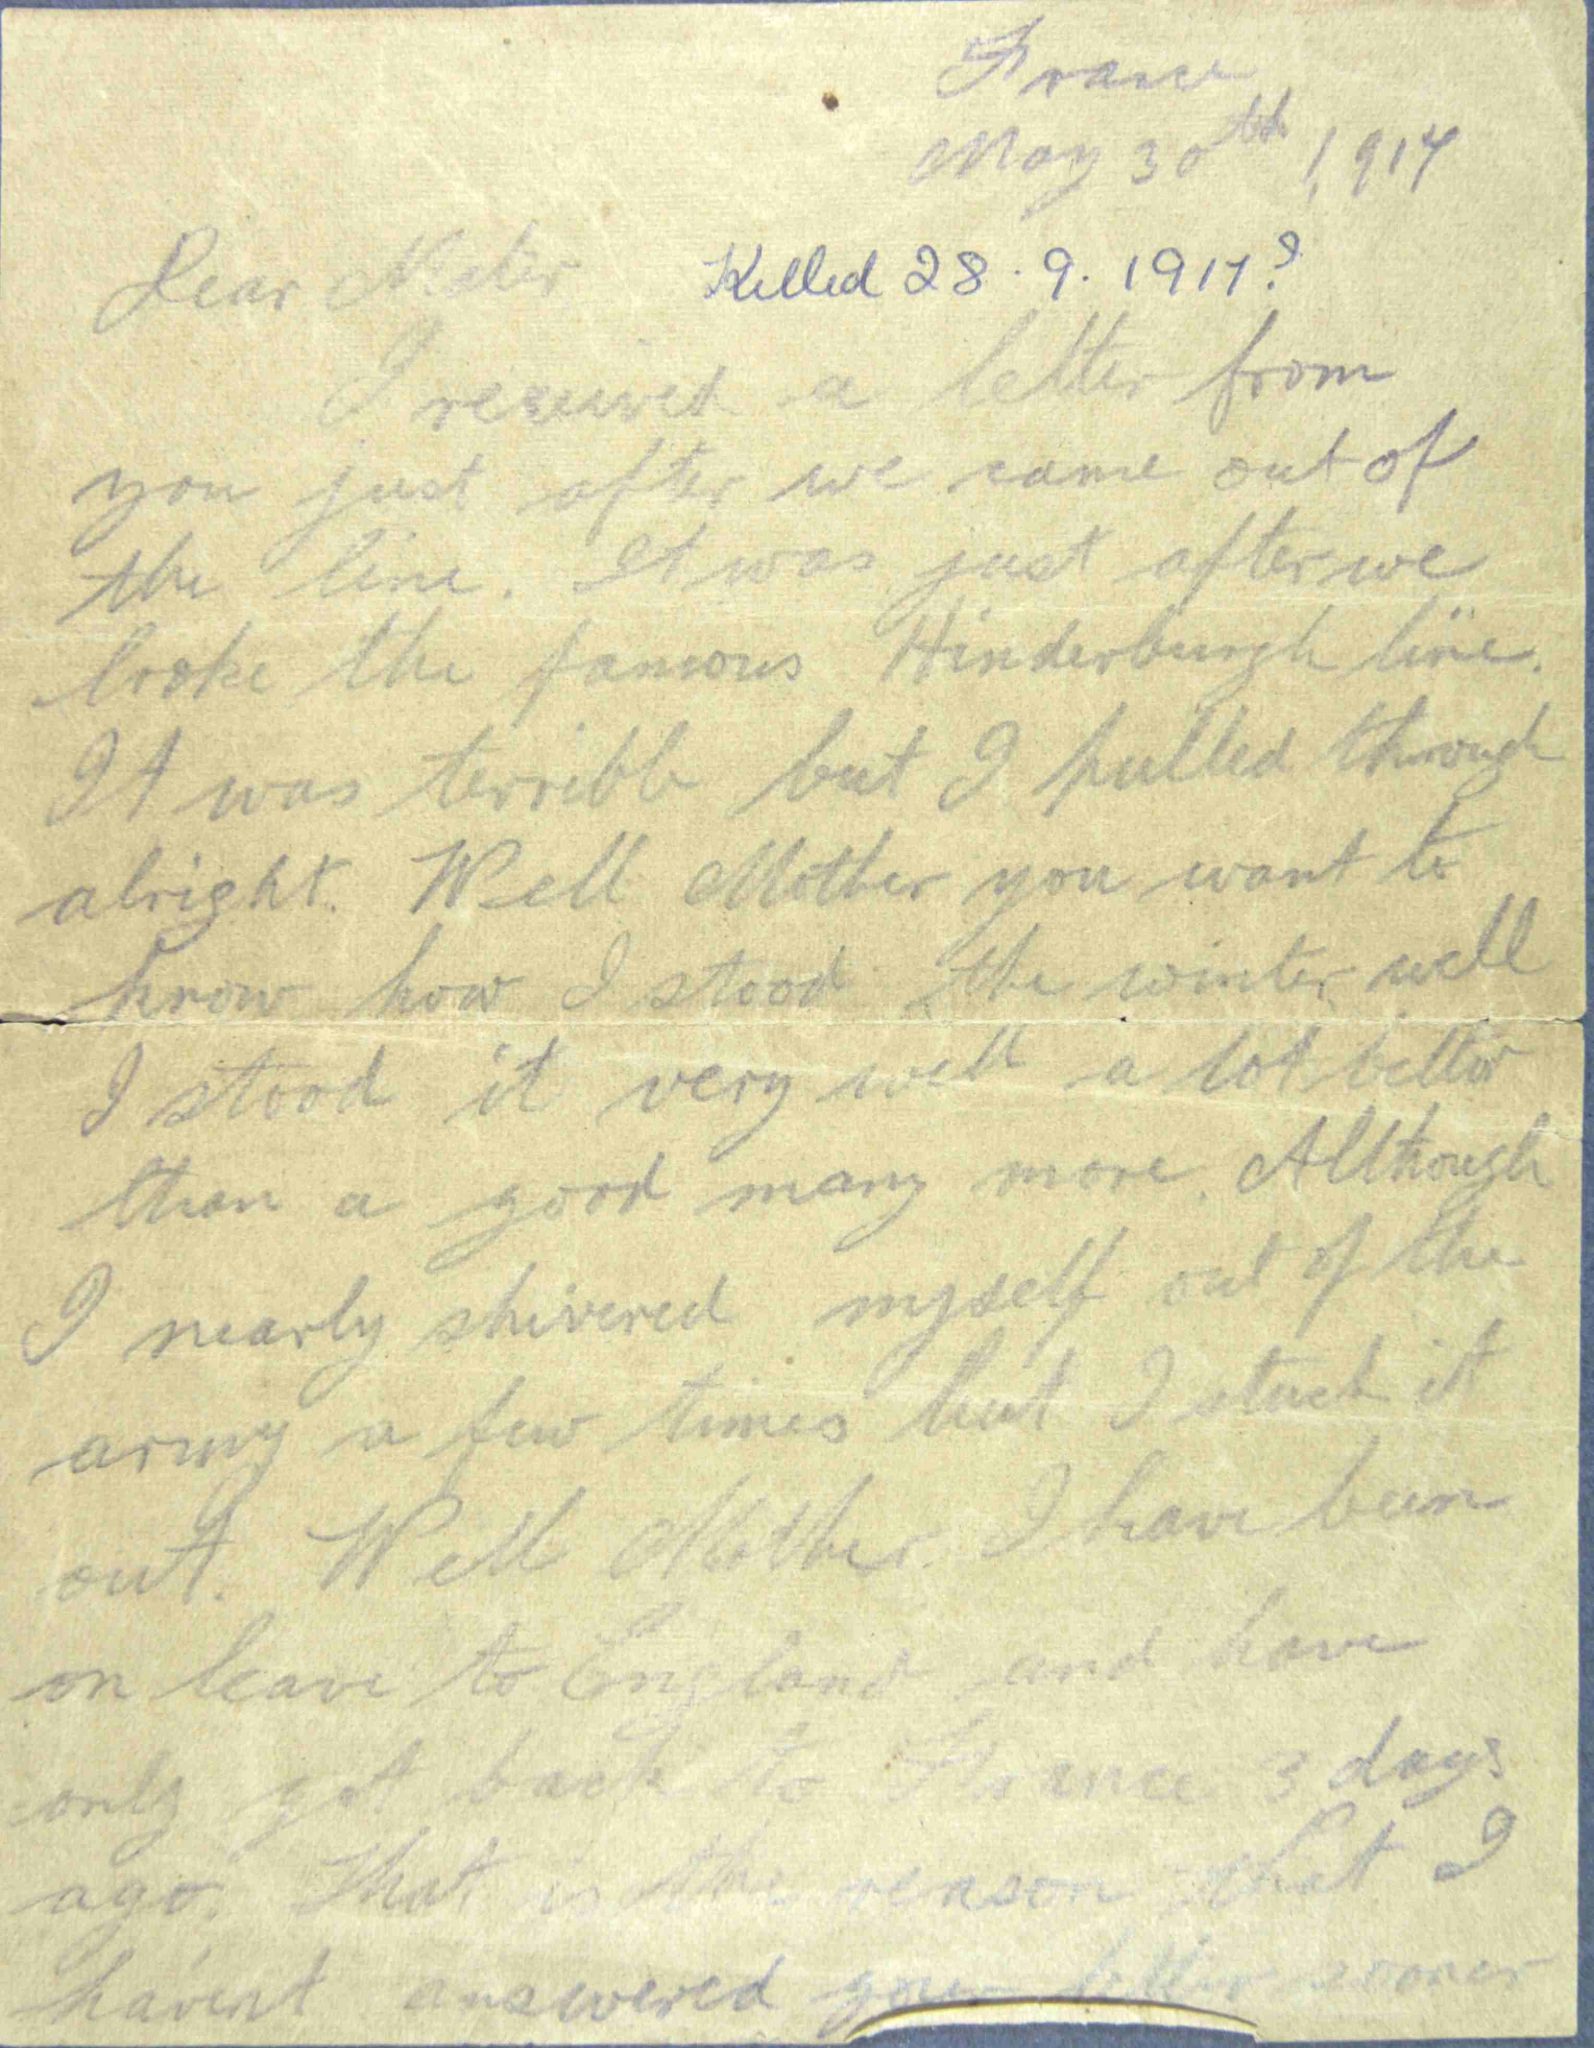 France
May 30th 1917
Dear Mater
Killed 28.9.1917?
I received a letter from
you just after we came out of
the line. It was just after we
broke the famous Hinderburgh line.
It was terrible but I pulled through
alright. Well Mother you want to
know how I stood the winter well
I stood it very well a lot better
than a good many more. Although
I nearly shivered myself out of the
army a few times but I stuck it
out. Well Mother I have been
on leave to England and have
only got back to France 3 days
ago. That is the reason that I
havent answered your letter sooner